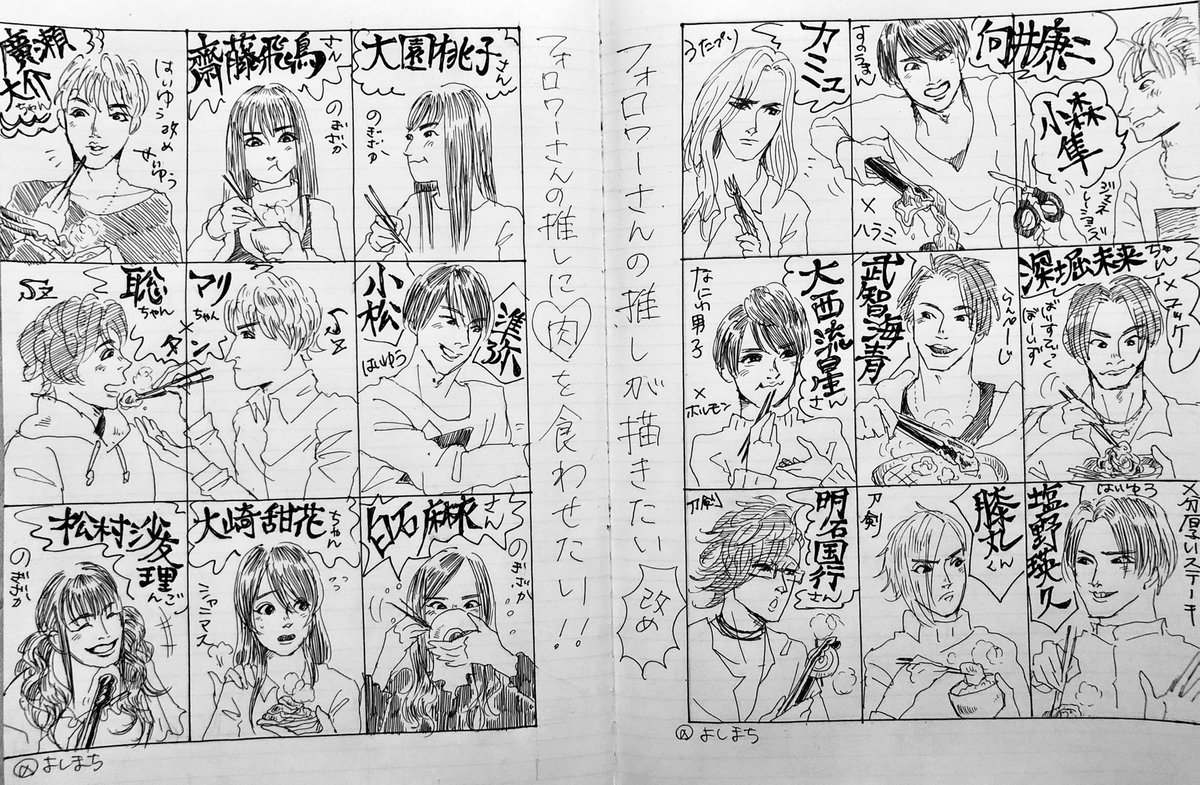 フォロワーさんの推しが描きたい改め
フォロワーさんの推しに肉を食わせたい!!
向井康二
すのうまん
×
ハラミ
カミュ
うたプリ
小森隼
じぇねれーしょんず
深堀未来ちゃん
×ユッケ
ばーすてぃっくぼーいず
武智海青
らんぺーじ
大西流星さん
なにわ男子
×
ホルモン
塩野瑛久
はいゆう
×分厚いステーキ
膝丸くん
刀剣
明石国行さん
刀剣
よしまち
大園桃子さん
のぎざか
齋藤飛鳥さん
のぎざか
廣瀬
大介ちゃん
はいゆう改め
せいゆう
小松
準弥
はいゆう
マリンちゃん
×
聡ちゃん
タン
SZ
SZ
白石麻衣さん
のぎざか
大崎甜花ちゃん
シャニマス
松村沙友理さん
のぎざか
よしまち